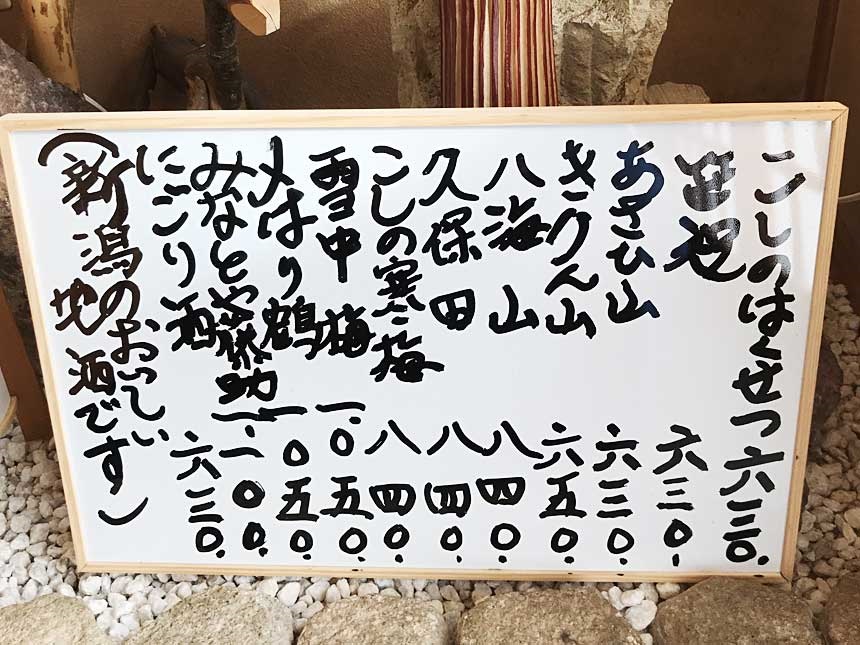 こしのはくせつ 六三〇.
笹祝 六三〇.
あさひ山 六三〇.
きりん山 六五〇.
八海山 八四〇.
久保田 八四〇.
こしの寒梅 八四〇.
雪中梅 一.〇五〇.
〆はり鶴 一.〇五〇.
みなとや藤助 一.一〇〇.
にごり酒 六三〇.
(新潟のおいしい
地酒です)